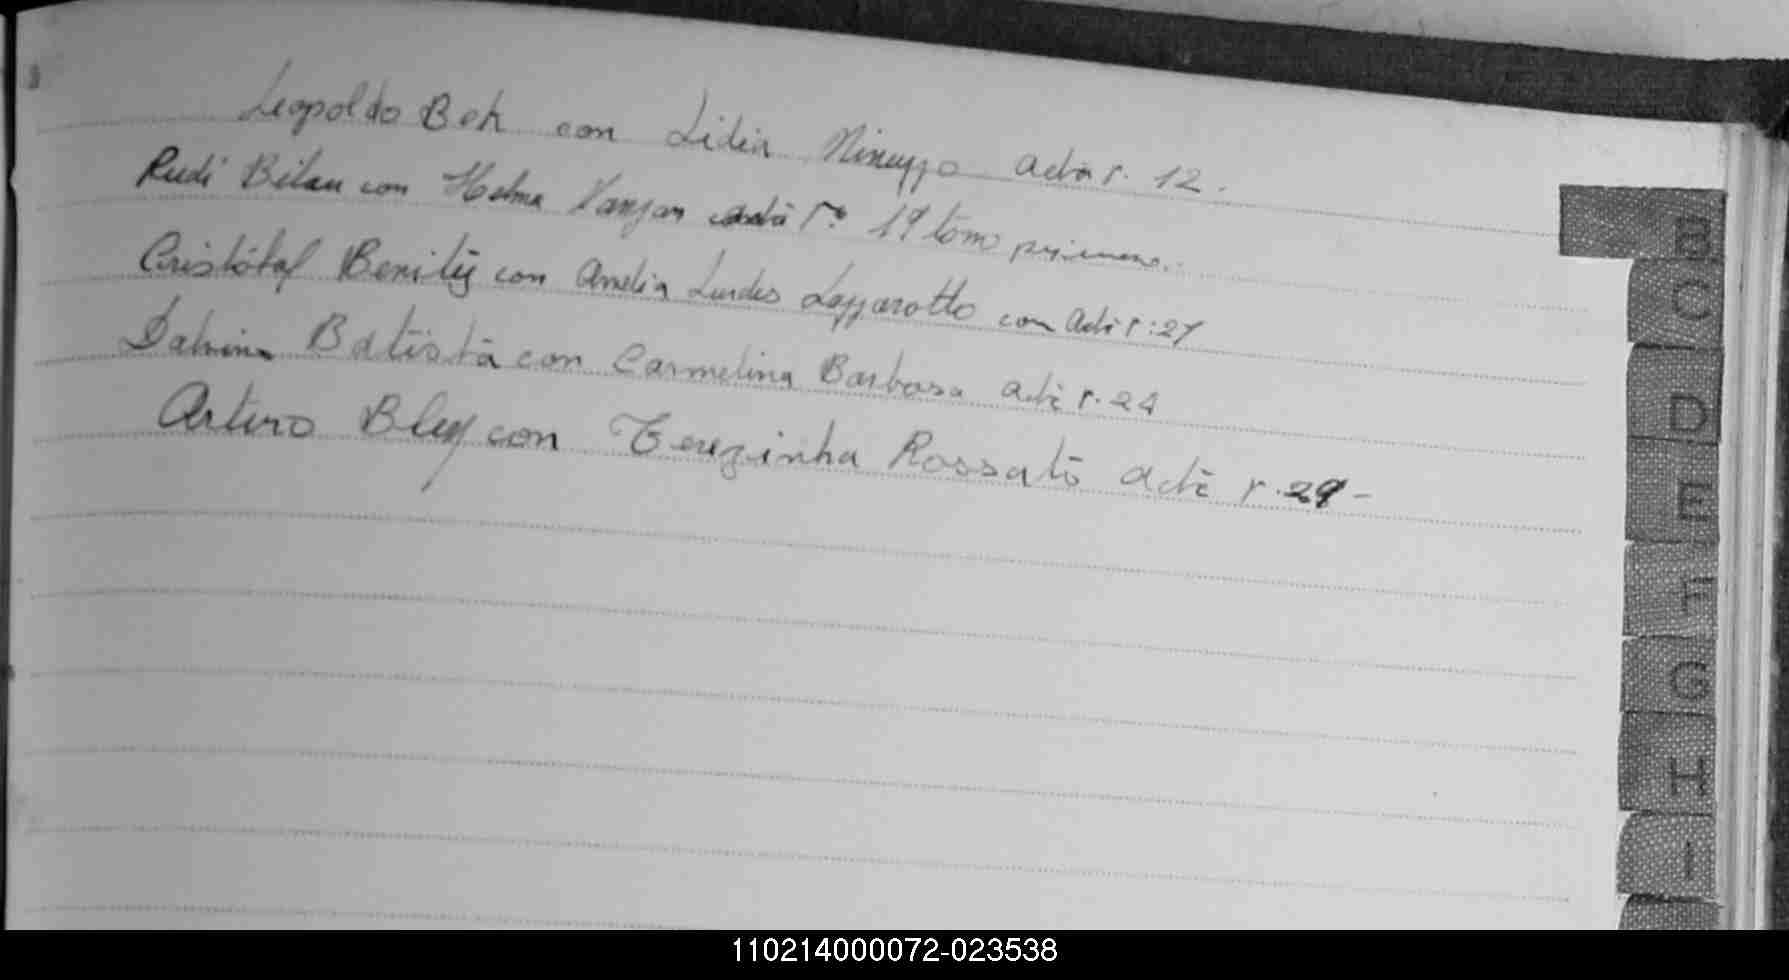 Leopoldo Beh con Lidia acta r. 12.
Rudi Bilau con Helma acta r° 19 tomo primero.
Cristóbal con Amelia Lurdes Lazzarotto con acta r: 27
Batista con Carmelina Barbosa acta r. 24
Arturo Bley con Terezinha Rossato acta r. 29 -
B
C
D
E
F
G
H
I
110214000072-023538